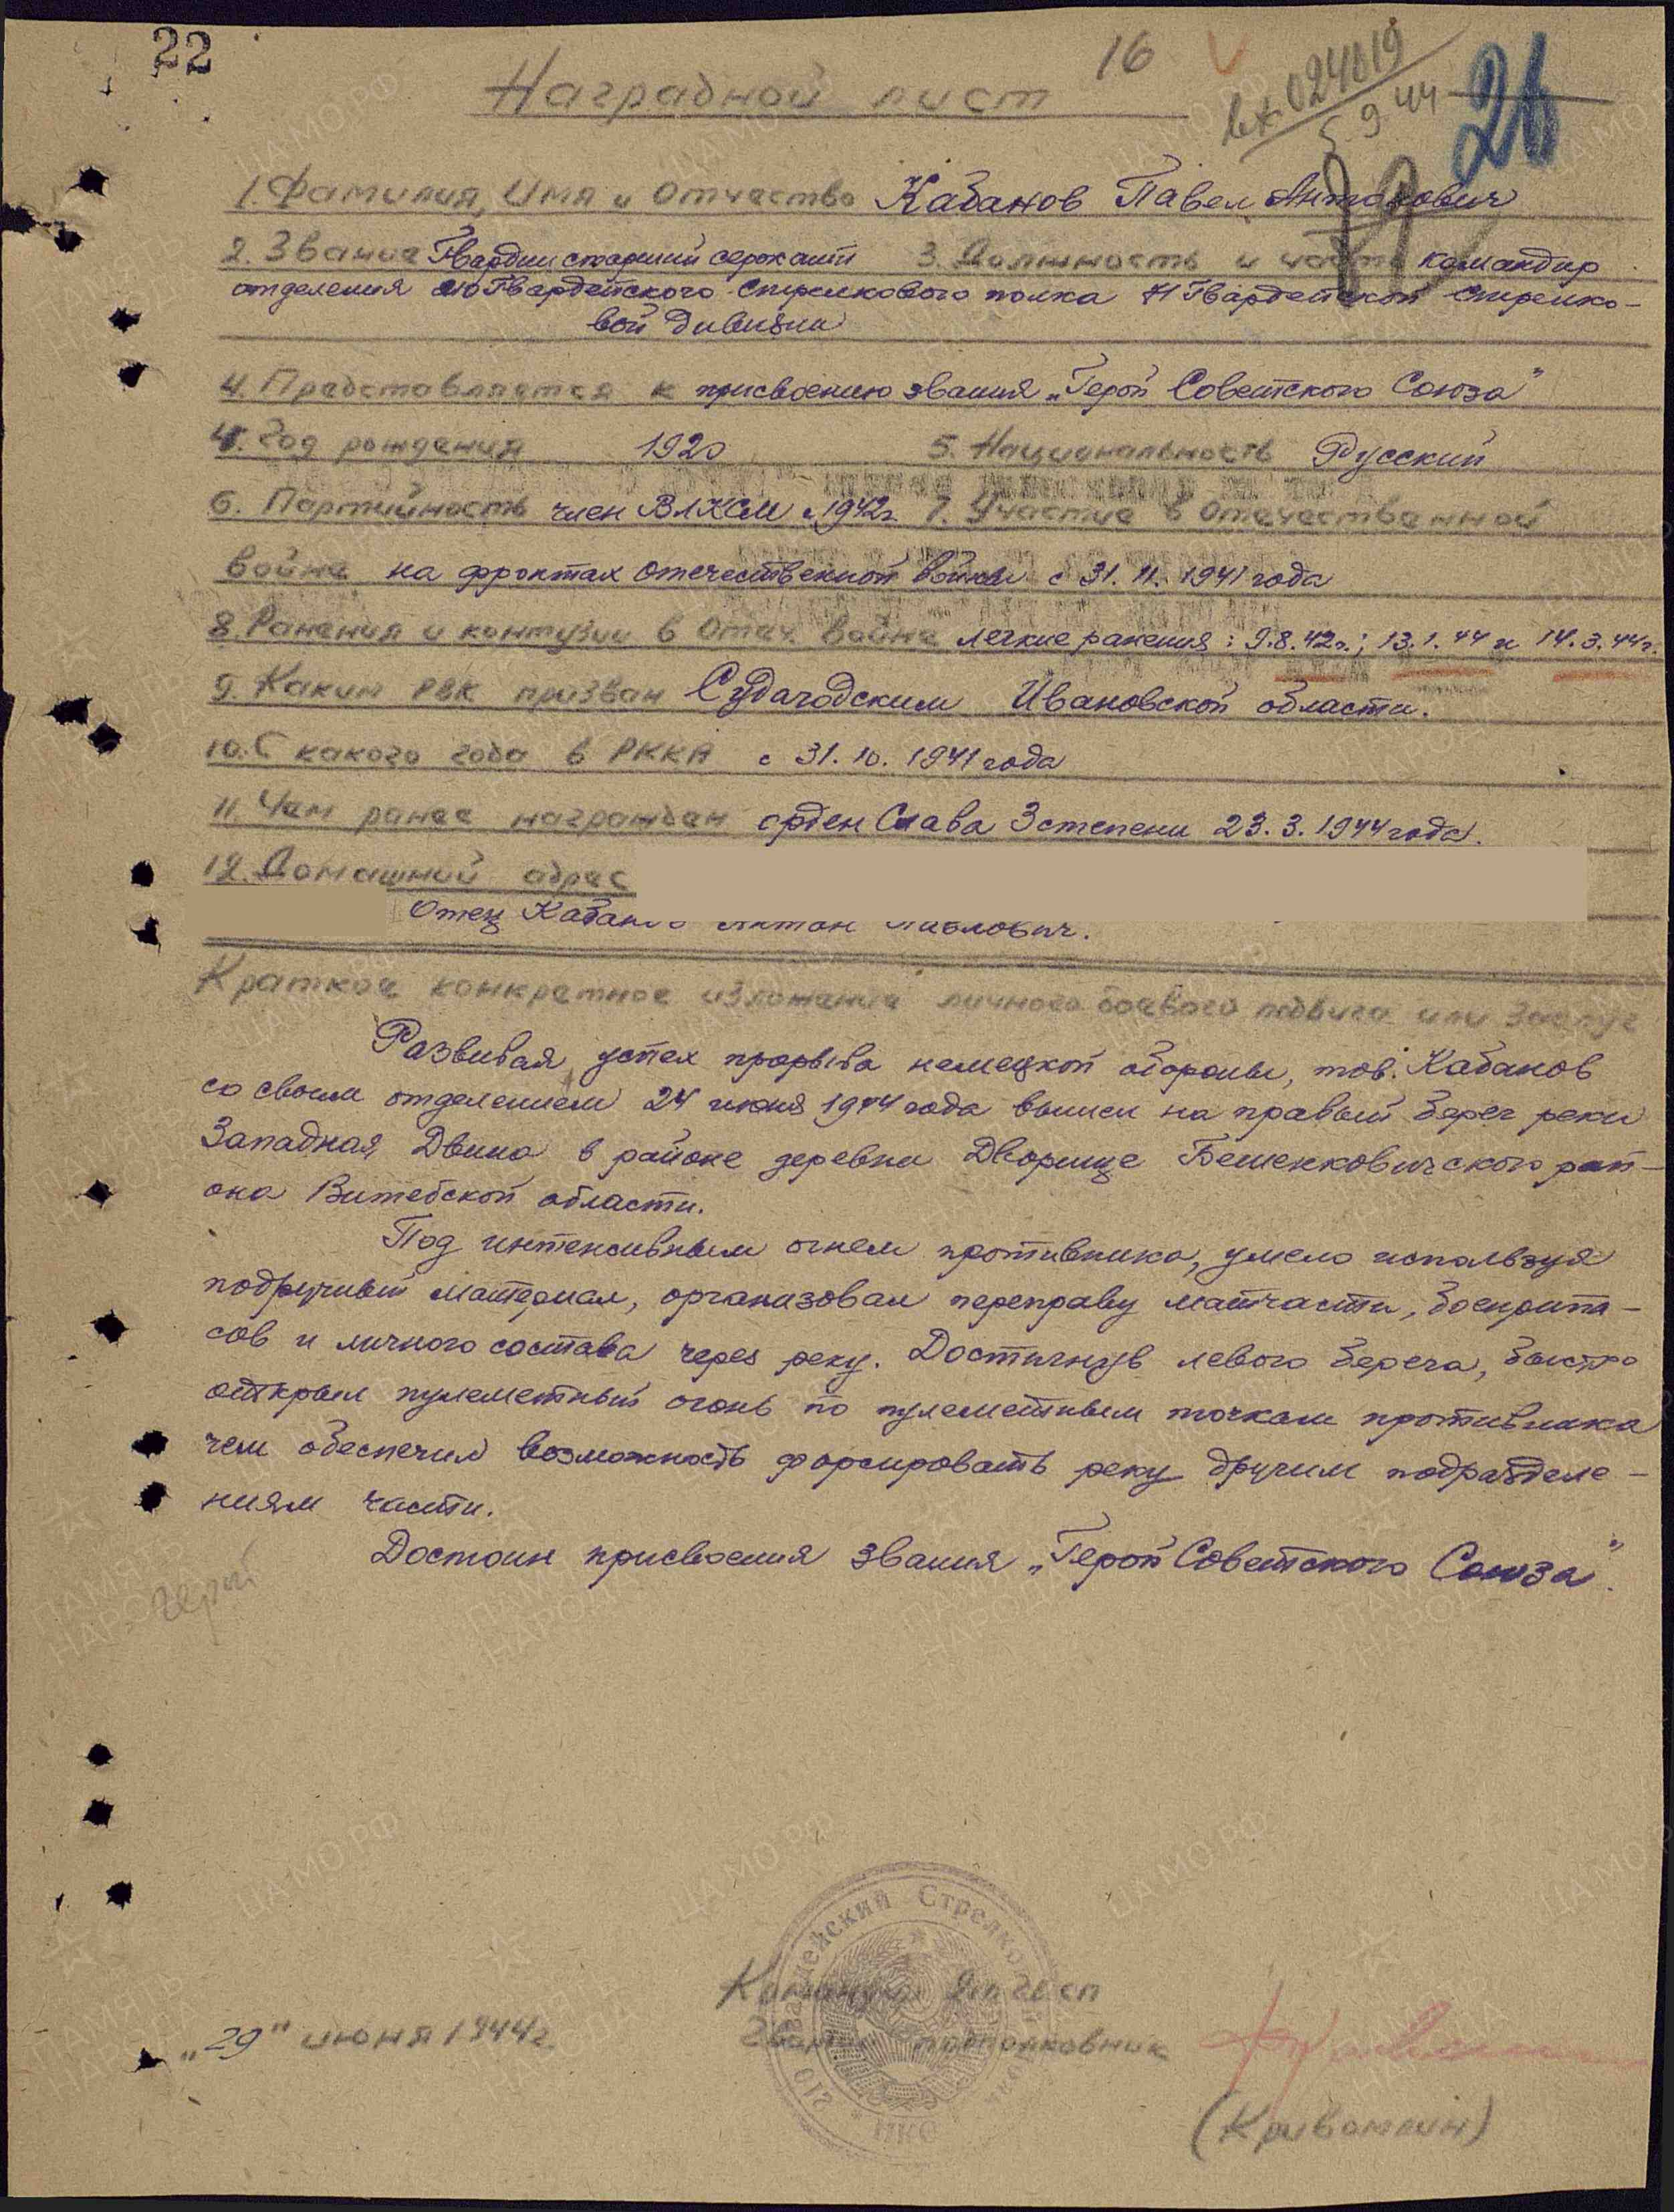 22
16
вх. 024619
5 9 44
26
Наградной лист
1. Фамилия, Имя и Отчество Кабанов Павел Антонович
2. Звание Гвардии старший сержант 3. Должность и часть командир
отделения 210 Гвардейского Стрелкового полка 71 Гвардейской Стрелко-
вой Дивизии
4. Представляется к присвоению звания „Герой Советского Союза"
4. Год рождения 1920 5. Национальность Русский
6. Партийность член ВЛКСМ с 1942г. 7. Участие в Отечественной
войне на фронтах Отечественной войны с 31. 11. 1941 года
8. Ранения и контузии в Отеч. войне легкие ранения: 9.8.42г.; 13.1.44 и 14.3.44г.
9. Каким РВК призван Судогодским Ивановской области.
10. С какого года в РККА с 31. 10. 1941 года
11. Чем ранее награжден орден Слава 3 степени 23. 3. 1944 года.
12. Домашний адрес
Отец Кабанов Антон Павлович.
Краткое конкретное изложение личного боевого подвига или заслуг
Развивая успех прорыва немецкой обороны, тов. Кабанов
со своим отделением 24 июня 1944 года вышел на правый берег реки
Западная Двина в районе деревни Дворище Бешенковичского рай-
она Витебской области.
Под интенсивным огнем противника, умело используя
подручный материал, организовал переправу матчасти, боеприпа-
сов и личного состава через реку. Достигнув левого берега, быстро
открыл пулеметный огонь по пулеметным точкам противника
чем обеспечил возможность форсировать реку другим подразделе-
ниям части.
Достоин присвоения звания „Герой Советского Союза".
герой
Командир 210 гв сп
Гвардии подполковник
„29" июня 1944г.
(Кривомлин)